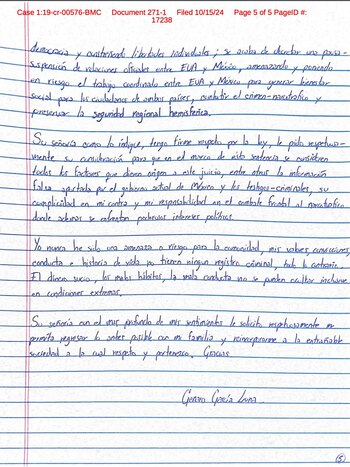 Case 1:19-cr-00576-BMC Document 271-1 Filed 10/15/24 Page 5 of 5 PageID #:
17238
democracia y cuartando libertades individuales; se acaba de decretar una pausa-
suspensión de relaciones oficiales entre EUA y México, amenazando y poniendo
en riesgo el trabajo coordinado entre EUA y México para generar bienestar
social para los ciudadanos de ambos países, combatir el crimen-narcotrafico y
preservar la seguridad regional hemisferica.
Su señoría como lo indiqué, tengo firme respeto por la ley, le pido respetuosa-
mente su consideración para que en el marco de esta sentencia se consideren
todos los factores que dieron origen a este juicio, entre otros la información
falsa aportada por el gobierno actual de México y los testigos-criminales, su
complicidad en mi contra y mi responsabilidad en el combate frontal al narcotrafico
donde además se enfrentan poderosos intereses políticos.
Yo nunca he sido una amenaza o riesgo para la comunidad, mis valores, convicciones,
conducta e historia de vida no tienen ningun registro criminal, todo lo contrario.
El dinero sucio, los malos hábitos, la mala conducta no se pueden ocultar incluso
en condiciones extremas.
Su señoría con el mas profundo de mis sentimientos le solicito respetuosamente me
permita regresar lo antes posible con mi familia y reincorporarme a la entrañable
sociedad a la cual respeto y pertenezco. Gracias
Genaro García Luna
5